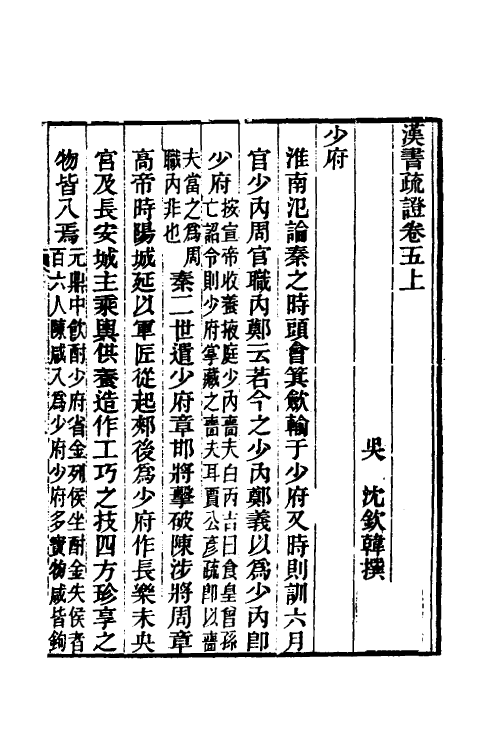 漢書疏證卷五上
吳 沈欽韓撰
少府
淮南氾論秦之時頭會箕斂輸于少府又時則訓六月
官少內周官職內鄭云若今之少內鄭義以爲少內卽
少府按宣帝收養掖庭少內嗇夫白丙吉曰食皇曾孫
亡詔令則少府掌藏之嗇夫耳賈公彥疏卽以嗇
夫當之爲周
職內非也 秦二世遣少府章邯將擊破陳涉將周章
高帝時陽城延以軍匠從起郟後爲少府作長樂未央
宮及長安城主乘輿供養造作工巧之技四方珍享之
物皆入焉元鼎中飲酎少府省金列侯坐酎金失侯者
百六人陳咸入爲少府少府多寶物咸皆鉤